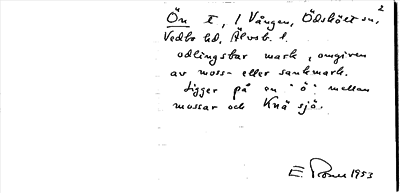 2
Ön I, i Vången, Ödskölt sn,
Vedbo hd, Älvsb. l.
odlingsbar mark, omgiven
av moss- eller sankmark.
Ligger på en "ö" mellan
mossar och Knäsjö.
E. 1953